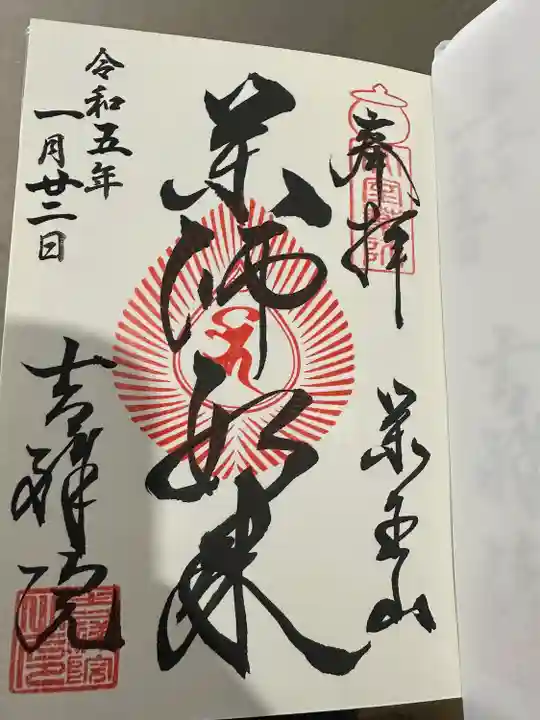 奉拝
薬王山
薬師如来
令和五年
一月廿二日
吉祥院